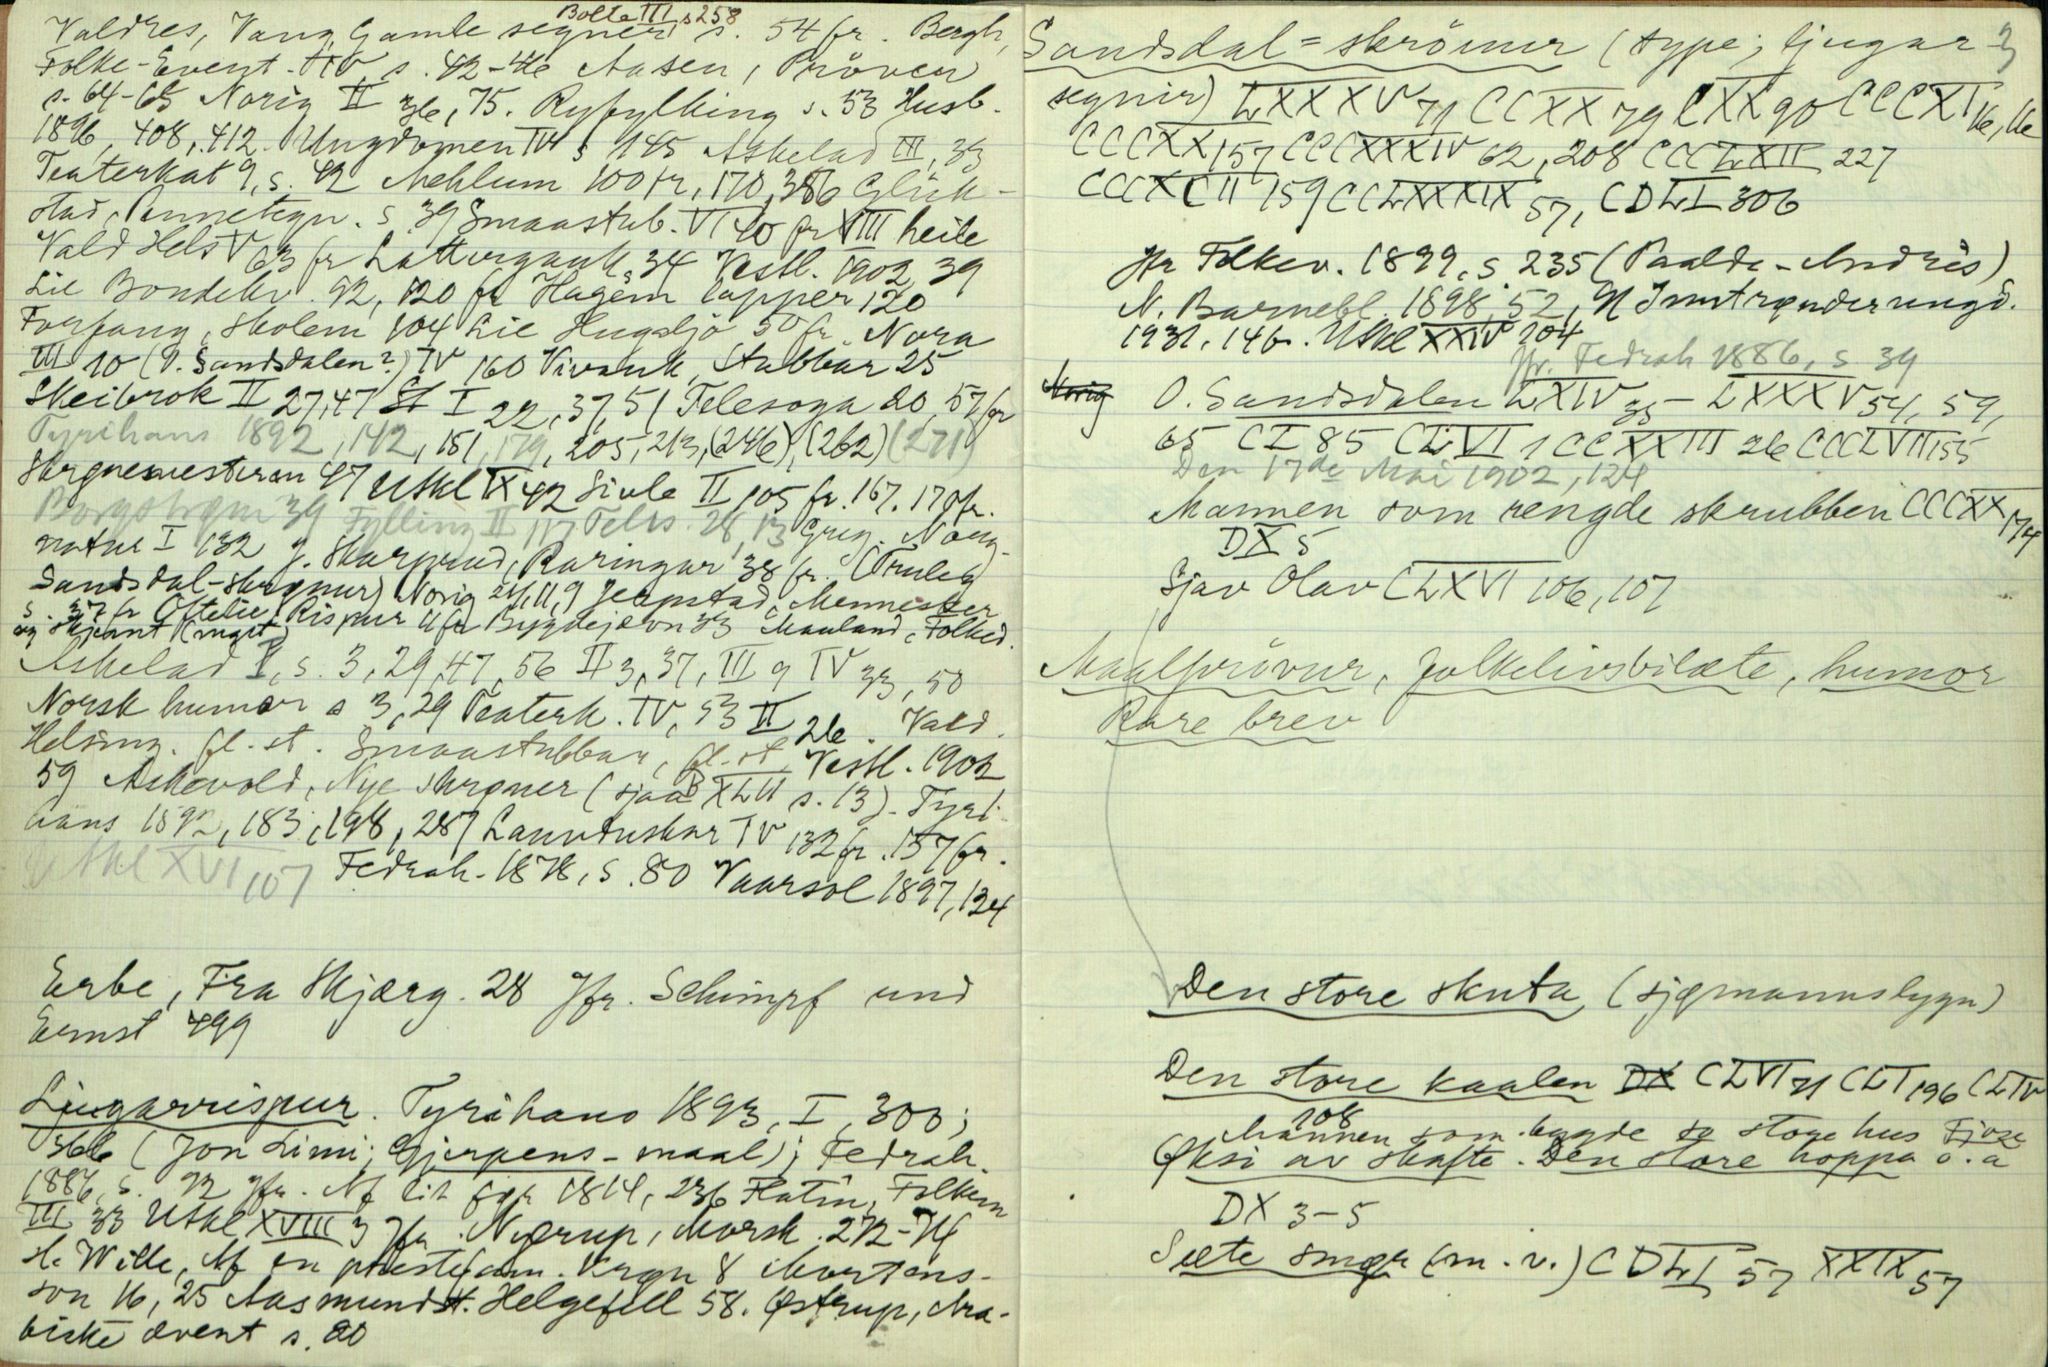 Bolte III s 258
Valdres, Vang, Gamle segner s. 54 fr. Bergh,
Folke-Event. s. 42-46 Aasen, Pröver
s. 64-65 Norig II 36, 75. Ryfylking s. 53 Husb.
1896, 408, 412 Ungdomen IV s 145 Askelad III, 33
Teaterkat 9, s. 42 Mehlum 100 fr, 170, 386 Glük-
stad, s. 39 Smaastub. VI 40 fr VIII heile
Vald Hels V 63 fr Lattergauk, 34 Vestl. 1902, 39
Lie Bondekv. 92, 120 fr Hagem lapper 120
Forfang, Skolem 104 Lie Hugsljo 50 fr. Nora
III 10 (O. Sandsdalen?) IV 160 Vivank, Stabbar 25
Skeibrok II 27, 47 St I 22, 37, 51 Telesoga 20, 57 fr
Tyrihans 1892, 142, 151, 179, 205, 213, (246), (262) (271)
Skrønemesteren 47 Utkl IX 42 Sivle II 105 fr. 167. 170 fr.
Borgstrøm 39 Fylling II 117 Telis. 28, 13 Greg. Norg-
natur I 132 J. Skarprud, Raringar 38 fr. (Truleg
Sandsdal-skrønur) Norig 21, 11, 9 Jerpstad, Mennesker
s. 37 fr Oftelie, Rispur 4 fr Bygdejævn 33 Mauland, Folked.
og skjemt (mgit)
Askelad I, s. 3, 29, 47, 56 II 3, 37, III 9 IV 33, 50
Norsk humor s 3, 29 Teaterk. IV, 53 II 26. Vald.
Helsing. fl. st. Smaastubbar, fl. st. Vestl. 1902
59 Askevold, Nye skrøner (sjaa B XLII s. 13). Tyri-
hans 1892, 183, 198, 287 Lauvduskar IV 132 fr. 157 fr.
Utkl XVI 107 Fedrah. 1878, s. 80 Vaarsol 1897, 124
Erbe, Fra Skjærg. 28 Jfr. Schimpf und
Ernst 499
Ljugarrispur. Tyrihans 1893, I, 300;
366 (Jon Limi; Gjerpens-maal); Fedrah.
1886, s. 92 jfr. Nf lit 1814, 236 Flatin, Folkem
III 33 Utkl XVIII 3 Jfr. Nyerup, Morsk. 272-74
H. Wille, Af en prestefam. Krøn 8 Mortens-
son 16, 25 Aasmundst. Helgefell 58. Østrup, Ara-
biske ævent s. 20
3
Sandsdal=skrömur (type; ljugar-
segnir) LXXXV 71 CCXX 79 CXX 90 CCCXI 16, 16
CCCXX 157 CCCXXXIV 62, 208 CCCLXII 227
CCCXCII 159 CCLXXXIX 57, CDLI 306
Jfr Folkev. 1899, s 235 (Paalde-Andris)
N. Barnebl. 1898, 52, N Inntrønderungd.
1931, 146. Utkl XXIV 204
Jfr. Fedrah 1886, s 39
Norig O. Sandsdalen LXIV 35 - LXXXV 54, 59,
65 CI 85 CLVI 1 CCXXIII 26 CCCLVII 155
Den 17de Mai 1902, 124
Mannen som rengde skrubben CCCXX 174
DX 5
Sjav Olav CLXVI 106, 107
Maalprövur, folkelivsbilæte, humor
Rare brev
Den store skuta (sjømannsløgn)
Den store kaalen DX CLVI 71 CLI 196 CLIV
108
Mannen som bygde so store hus Fjøse
Øksi av skafte. Den store hoppa o. a
DX 3-5
Sæte smør (m. v.) CDLI 57 XXIX 57